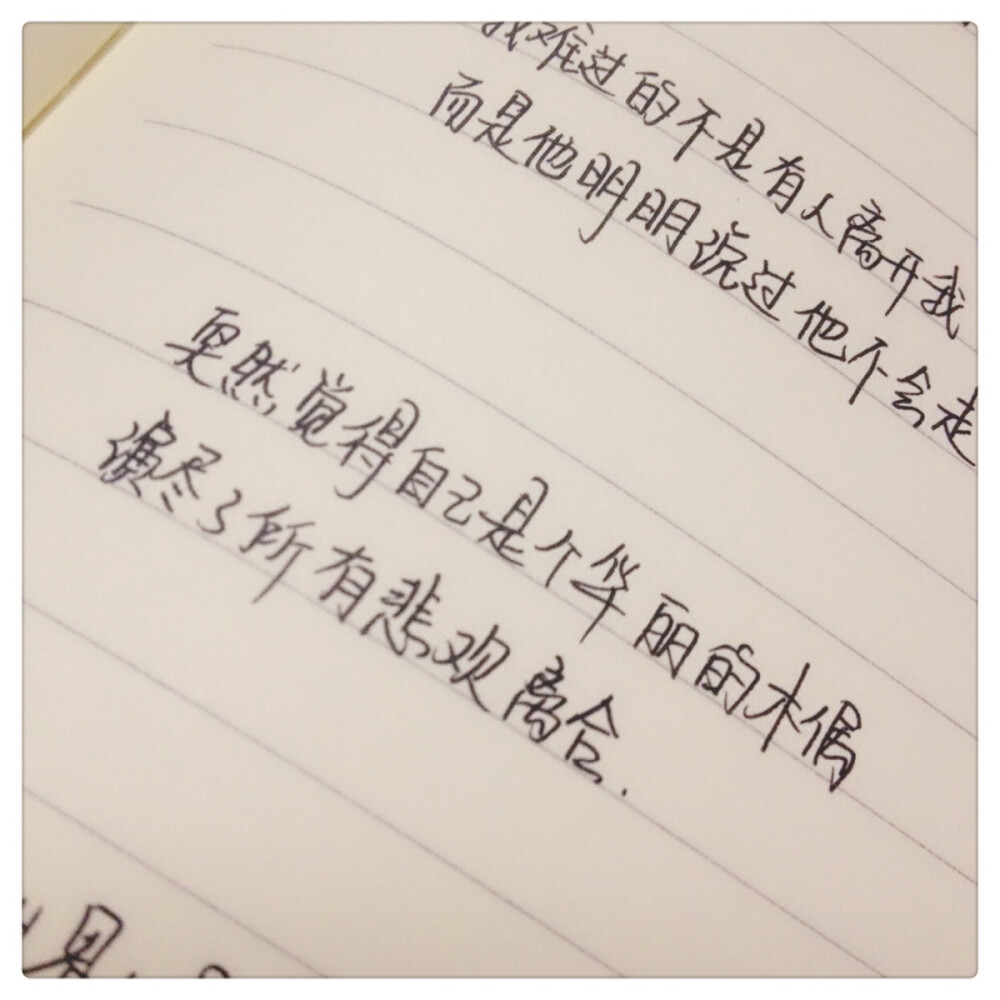 我难过的不是有人离开我
而是他明明说过他不会走
突然觉得自己是个华丽的木偶
演尽了所有悲欢离合.